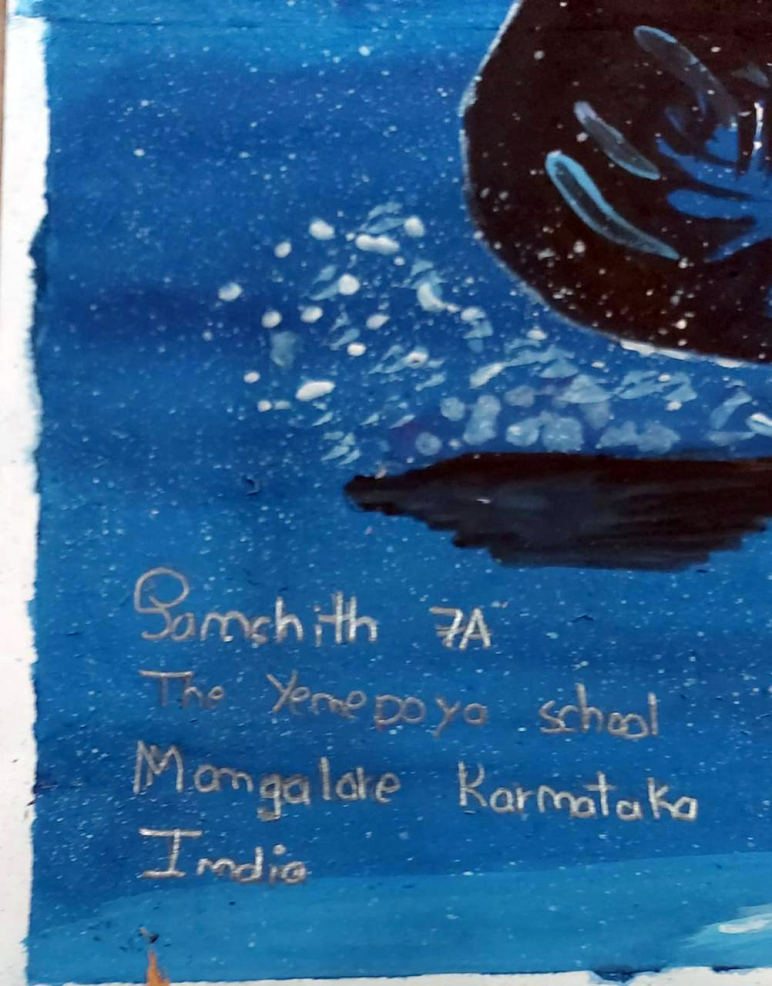 Sanchith "7A"
The Yenepoya school
Mangalore Karnataka
India